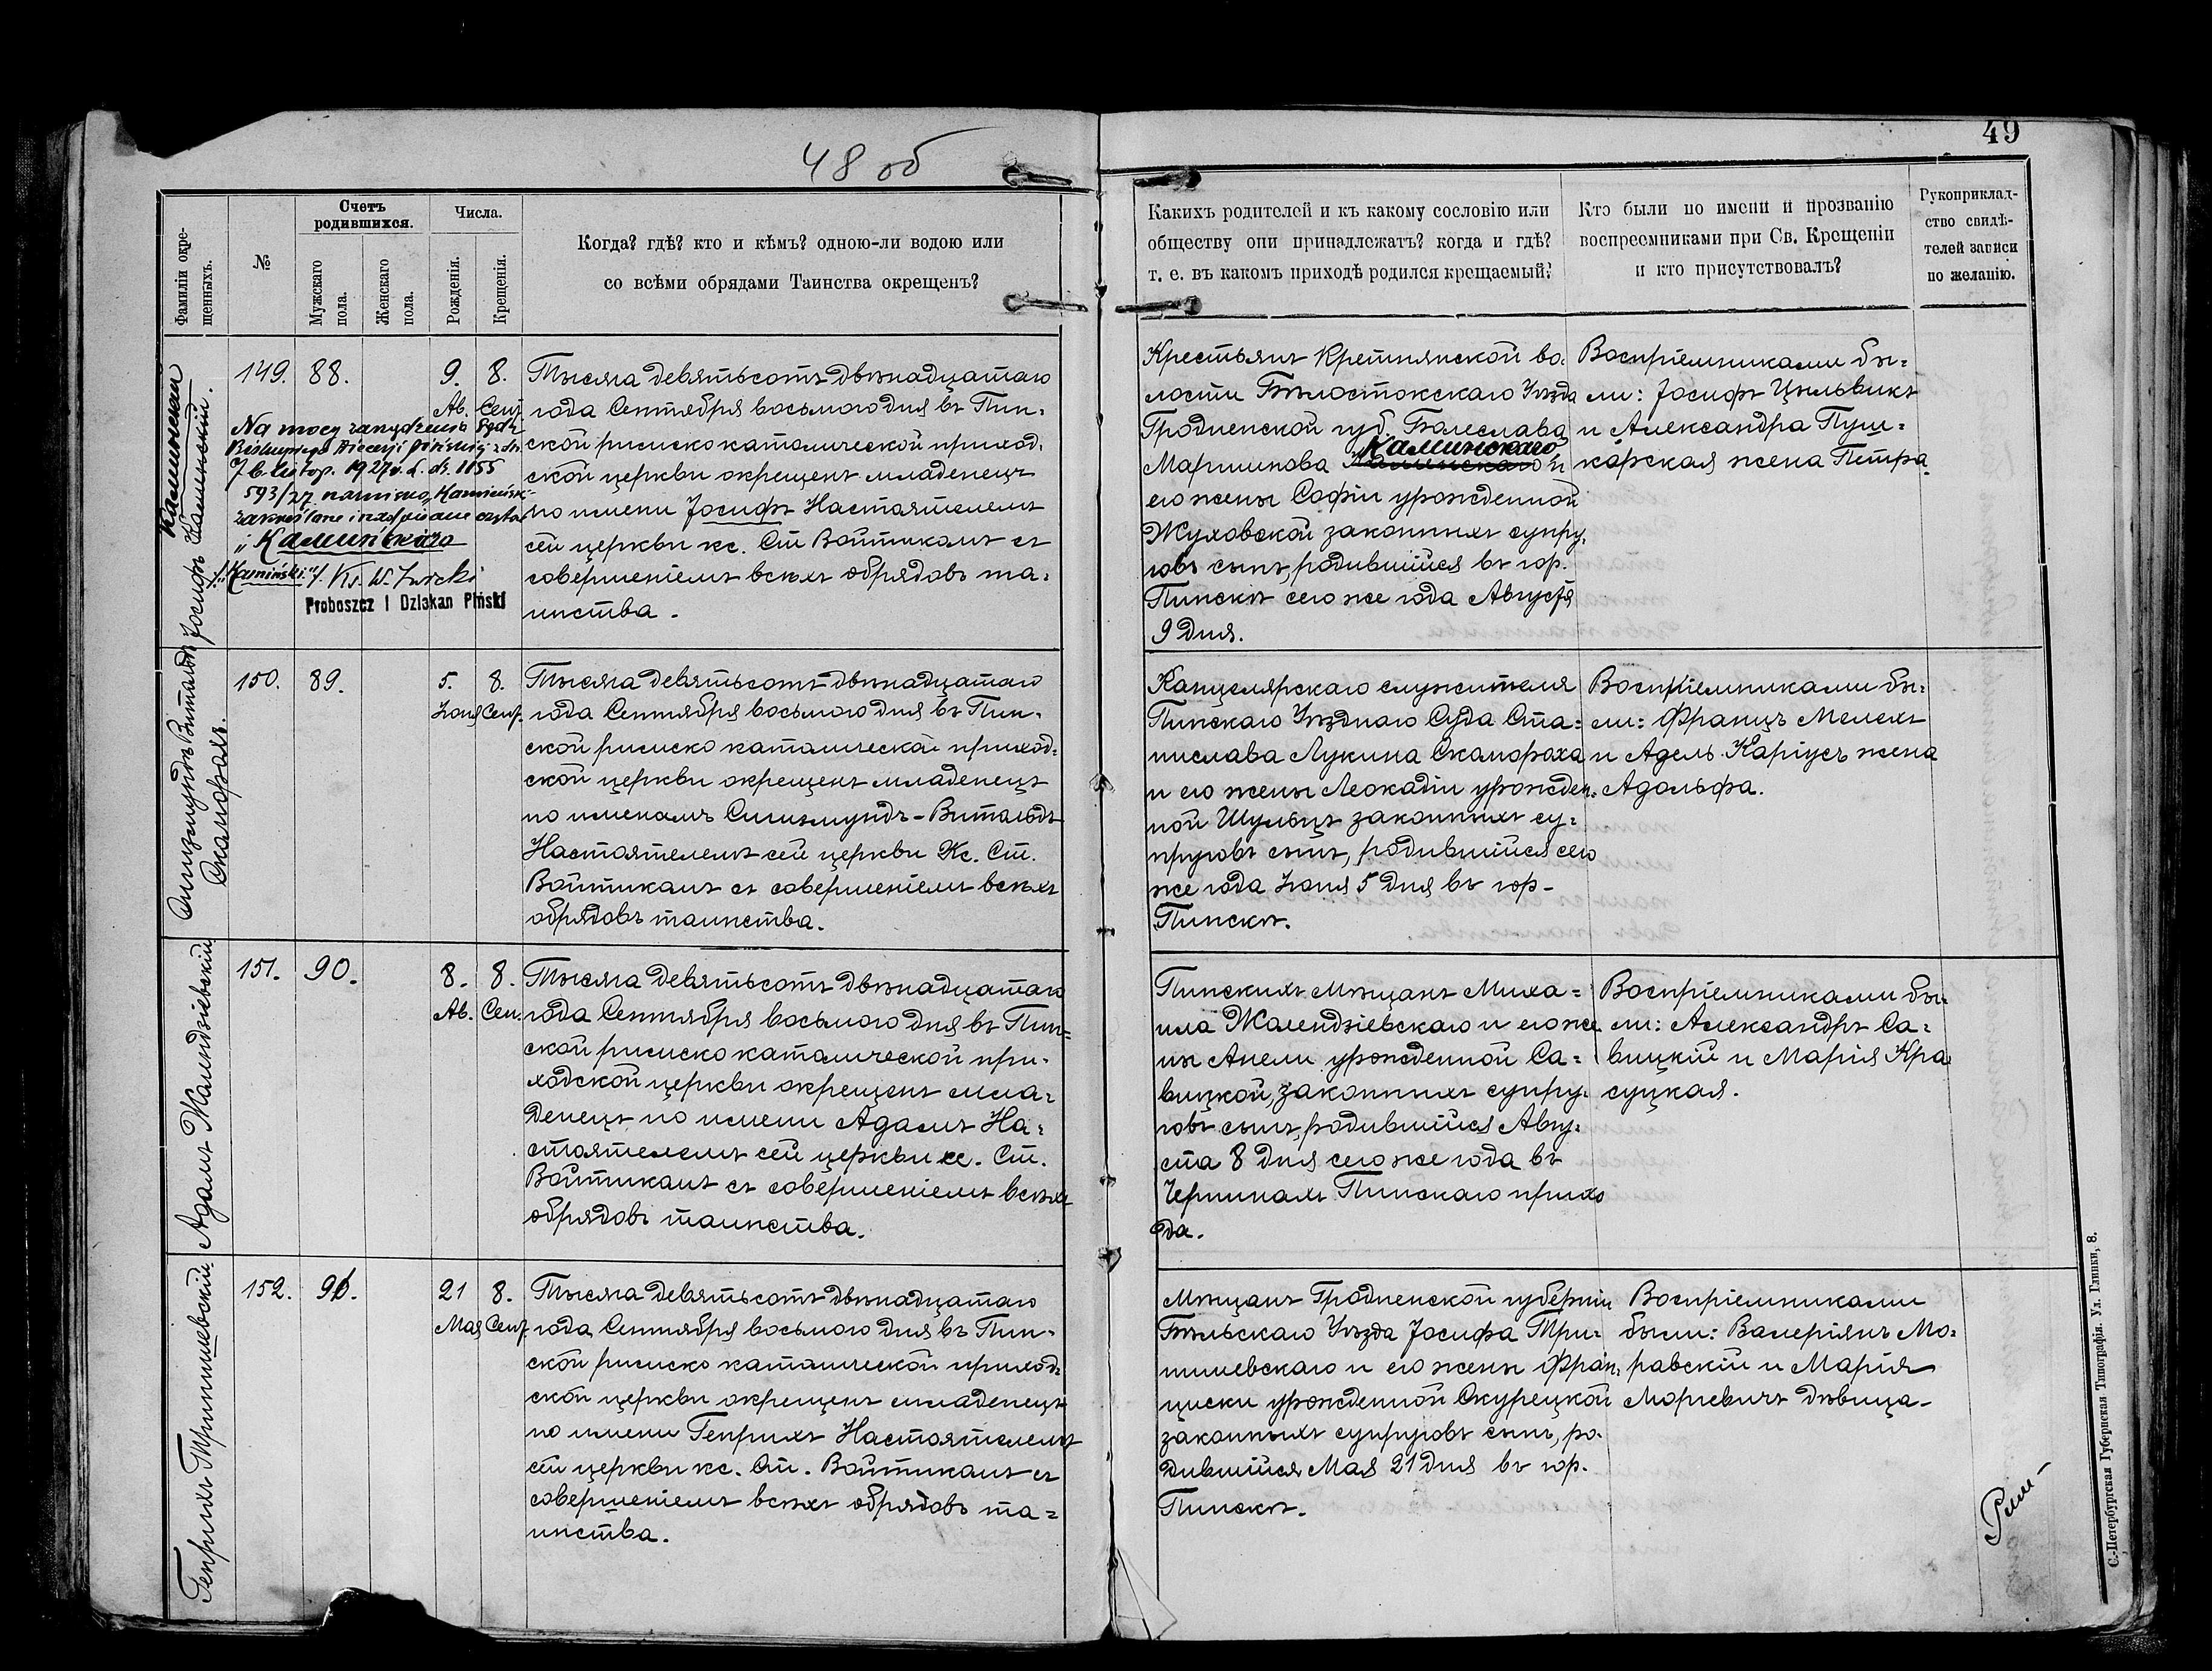 48 об
49
Фамиліи окре-
щенныхъ.
№
Счетъ
родившихся.
Мужскаго
пола.
Женскаго
пола.
Числа.
Рожденія.
Крещенія.
Когда? гдѣ? кто и кѣмъ? одною-ли водою или
со всѣми обрядами Таинства окрещенъ?
Какихъ родителей и къ какому сословію или
обществу они принадлежатъ? когда и гдѣ?
т. е. въ какомъ приходѣ родился крещаемый?
Кто были по имени и прозванію
воспреемниками при Св. Крещеніи
и кто присутствовалъ?
Рукоприклад-
ство свидѣ-
телей записи
по желанію.
Іосифъ
149. 88. 9. 8.
Ав. Сент.
Na mocy zarządzenia Sądu
Biskupiego Diecezji Pińskiej z dn.
7 b. listop. 1927 r. L. dz. 1155
593/27 nazwisko „Kamieński"
zakreślono i nadpisano
„Каминскаго
/„Kamiński"/. Ks. W.
Proboszcz i Dziekan Piński
Тысяча девятьсотъ двѣнадцатаго
года Сентября восьмого дня въ Пин-
ской римско католической приход-
ской церкви окрещенъ младенецъ
по имени Іосифъ Настоятелемъ
сей церкви кс. Ст. Войтикамъ съ
совершеніемъ всѣхъ обрядовъ та-
инства.
Крестьянъ волости Бѣлостокскаго Уѣзда
Гродненской губ. Болеслава
Каминскаго
Мартинова и
его жены Софіи урожденной
Жуховской законныхъ супру-
говъ сынъ, родившійся въ гор.
Пинскѣ сего же года Августа
9 дня.
Воспріемниками бы-
ли: Іосифъ Цыльвикъ
и Александра Пуш-
карская жена Петра.
Сигизмундъ Витальдъ
Скаморохъ.
150. 89. 5. 8.
Іоня Сент.
Тысяча девятьсотъ двѣнадцатаго
года Сентября восьмого дня въ Пин-
ской римско католической приход-
ской церкви окрещенъ младенецъ
по именамъ Сигизмундъ-Витальдъ
Настоятелемъ сей церкви Кс. Ст.
Войтикамъ съ совершеніемъ всѣхъ
обрядовъ таинства.
Канцелярскаго служителя
Пинскаго Уѣзднаго Суда Ста-
нислава Лукина Скамороха
и его жены Леокадіи урожден-
ной Шульцъ законныхъ су-
пруговъ сынъ, родившійся сего
же года Іоня 5 дня въ гор-
Пинскѣ.
Воспріемниками бы-
ли: Францъ Мелехъ
и Адель Каріусъ жена
Адольфа.
Адамъ Жолендзіевскій
151. 90. 8. 8.
Ав. Сен.
Тысяча девятьсотъ двѣнадцатаго
года Сентября восьмого дня въ Пин-
ской римско католической при-
ходской церкви окрещенъ мла-
денецъ по имени Адамъ На-
стоятелемъ сей церкви кс. Ст.
Войтикамъ съ совершеніемъ всѣхъ
обрядовъ таинства.
Пинскихъ Мѣщанъ Миха-
ила Жолендзіевскаго и его же-
ны Анели урожденной Са-
вицкой, законныхъ супру-
говъ сынъ, родившійся Авгу-
ста 8 дня сего же года въ
Пинскаго прихо
да.
Воспріемниками бы-
ли: Александръ Са-
вицкій и Марія Кра
суцкая.
Генрихъ Тришишевскій
152. 91. 21 8.
Мая Сент.
Тысяча девятьсотъ двѣнадцатаго
года Сентября восьмого дня въ Пин-
ской римско католической приход-
ской церкви окрещенъ младенецъ
по имени Генрихъ Настоятелемъ
сей церкви кс. Ст. Войтикамъ съ
совершеніемъ всѣхъ обрядовъ та-
инства.
Мѣщанъ Гродненской губерніи
Бѣльскаго Уѣзда Іосифа и его жены Фран-
циски урожденной Скурецкой
законныхъ супруговъ сынъ, ро-
дившійся Мая 21 дня въ гор.
Пинскѣ.
Воспріемниками
были: Валеріянъ Мо-
равскій и Марія
дѣвица-
С.-Петербургская Губернская Типографія. Ул. Глинки, 8.